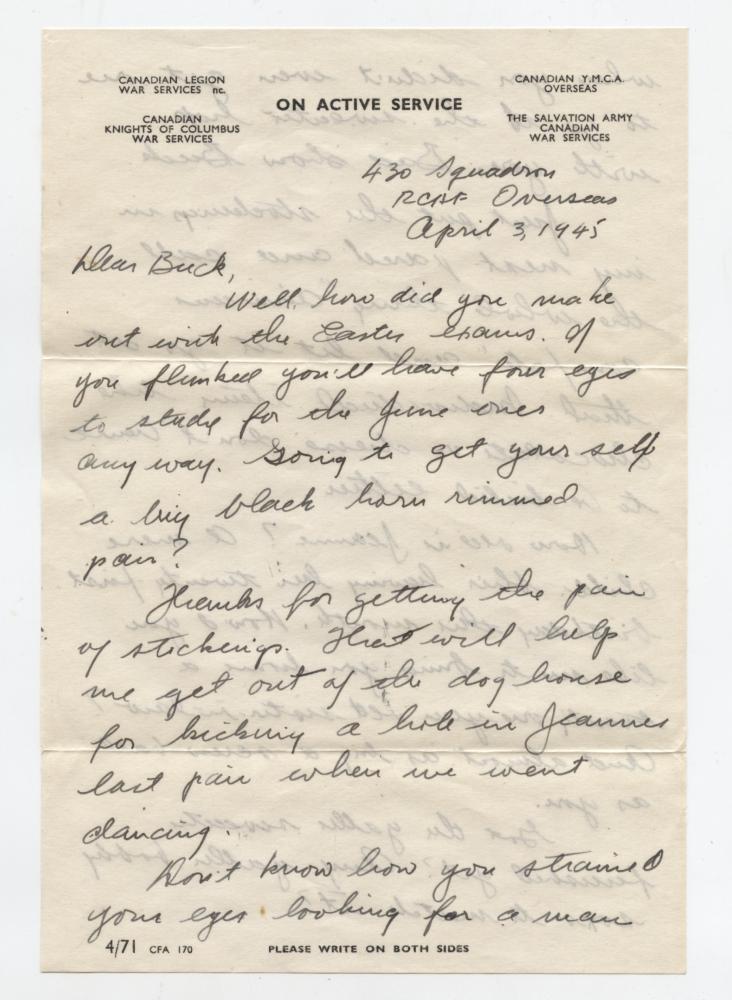 CANADIAN LEGION
WAR SERVICES INC.
CANADIAN
KNIGHTS OF COLUMBUS
WAR SERVICES
ON ACTIVE SERVICE
CANADIAN Y.M.C.A.
OVERSEAS
THE SALVATION ARMY
CANADIAN
WAR SERVICES
430 Squadron
RCAF Overseas
April 3, 1945
Dear Buck,
Well, how did you make
out with the Easter exams. If
you flunked you'll have four eyes
to study for the June ones
any way. Going to get your self
a big black horn rimmed
pair?
Thanks for getting the pair
of stockings. That will help
me get out of the dog house
for kicking a hole in Jeannes
last pair when we went
dancing.
Don't know how you strained
your eyes looking for a man
4/71 CFA 170
PLEASE WRITE ON BOTH SIDES